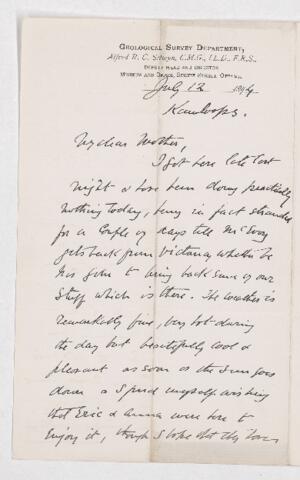 GEOLOGICAL SURVEY DEPARTMENT,
Alfred R. C. Selwyn, C.M.G., LL.D., F.R.S.,
DEPUTY HEAD AND DIRECTOR
MUSEUM AND OFFICE, SUSSEX STREET, OTTAWA.
July 12 1894
Kamloops.
My dear Mother,
I got here late last
night & have been doing practically
nothing today, being in fact stranded
for a couple of days till McEvoy
gets back from Victoria whither he
has gone to bring back some of our
stuff which is there. The weather is
remarkably fine, very hot during
the day but beautifully cool &
pleasant as soon as the sun goes
down & I find myself wishing
that Eric & Anna were here to
enjoy it, though I hope that they have